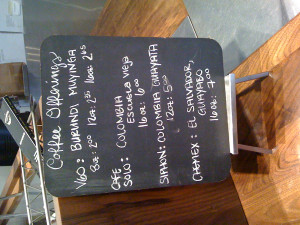 Coffee Offerings
V60: BURUNDI MUYINGA
8oz: 2.00 12oz: 2.35 16oz: 2.65
CAFE SOLO: COLOMBIA
ESCUELA VIEJO
16 oz: 6.00
SIPHON: COLOMBIA GUAYATA
12oz: 5.00
CHEMEX: EL SALVADOR,
GUAYABO
16 oz: 7.00